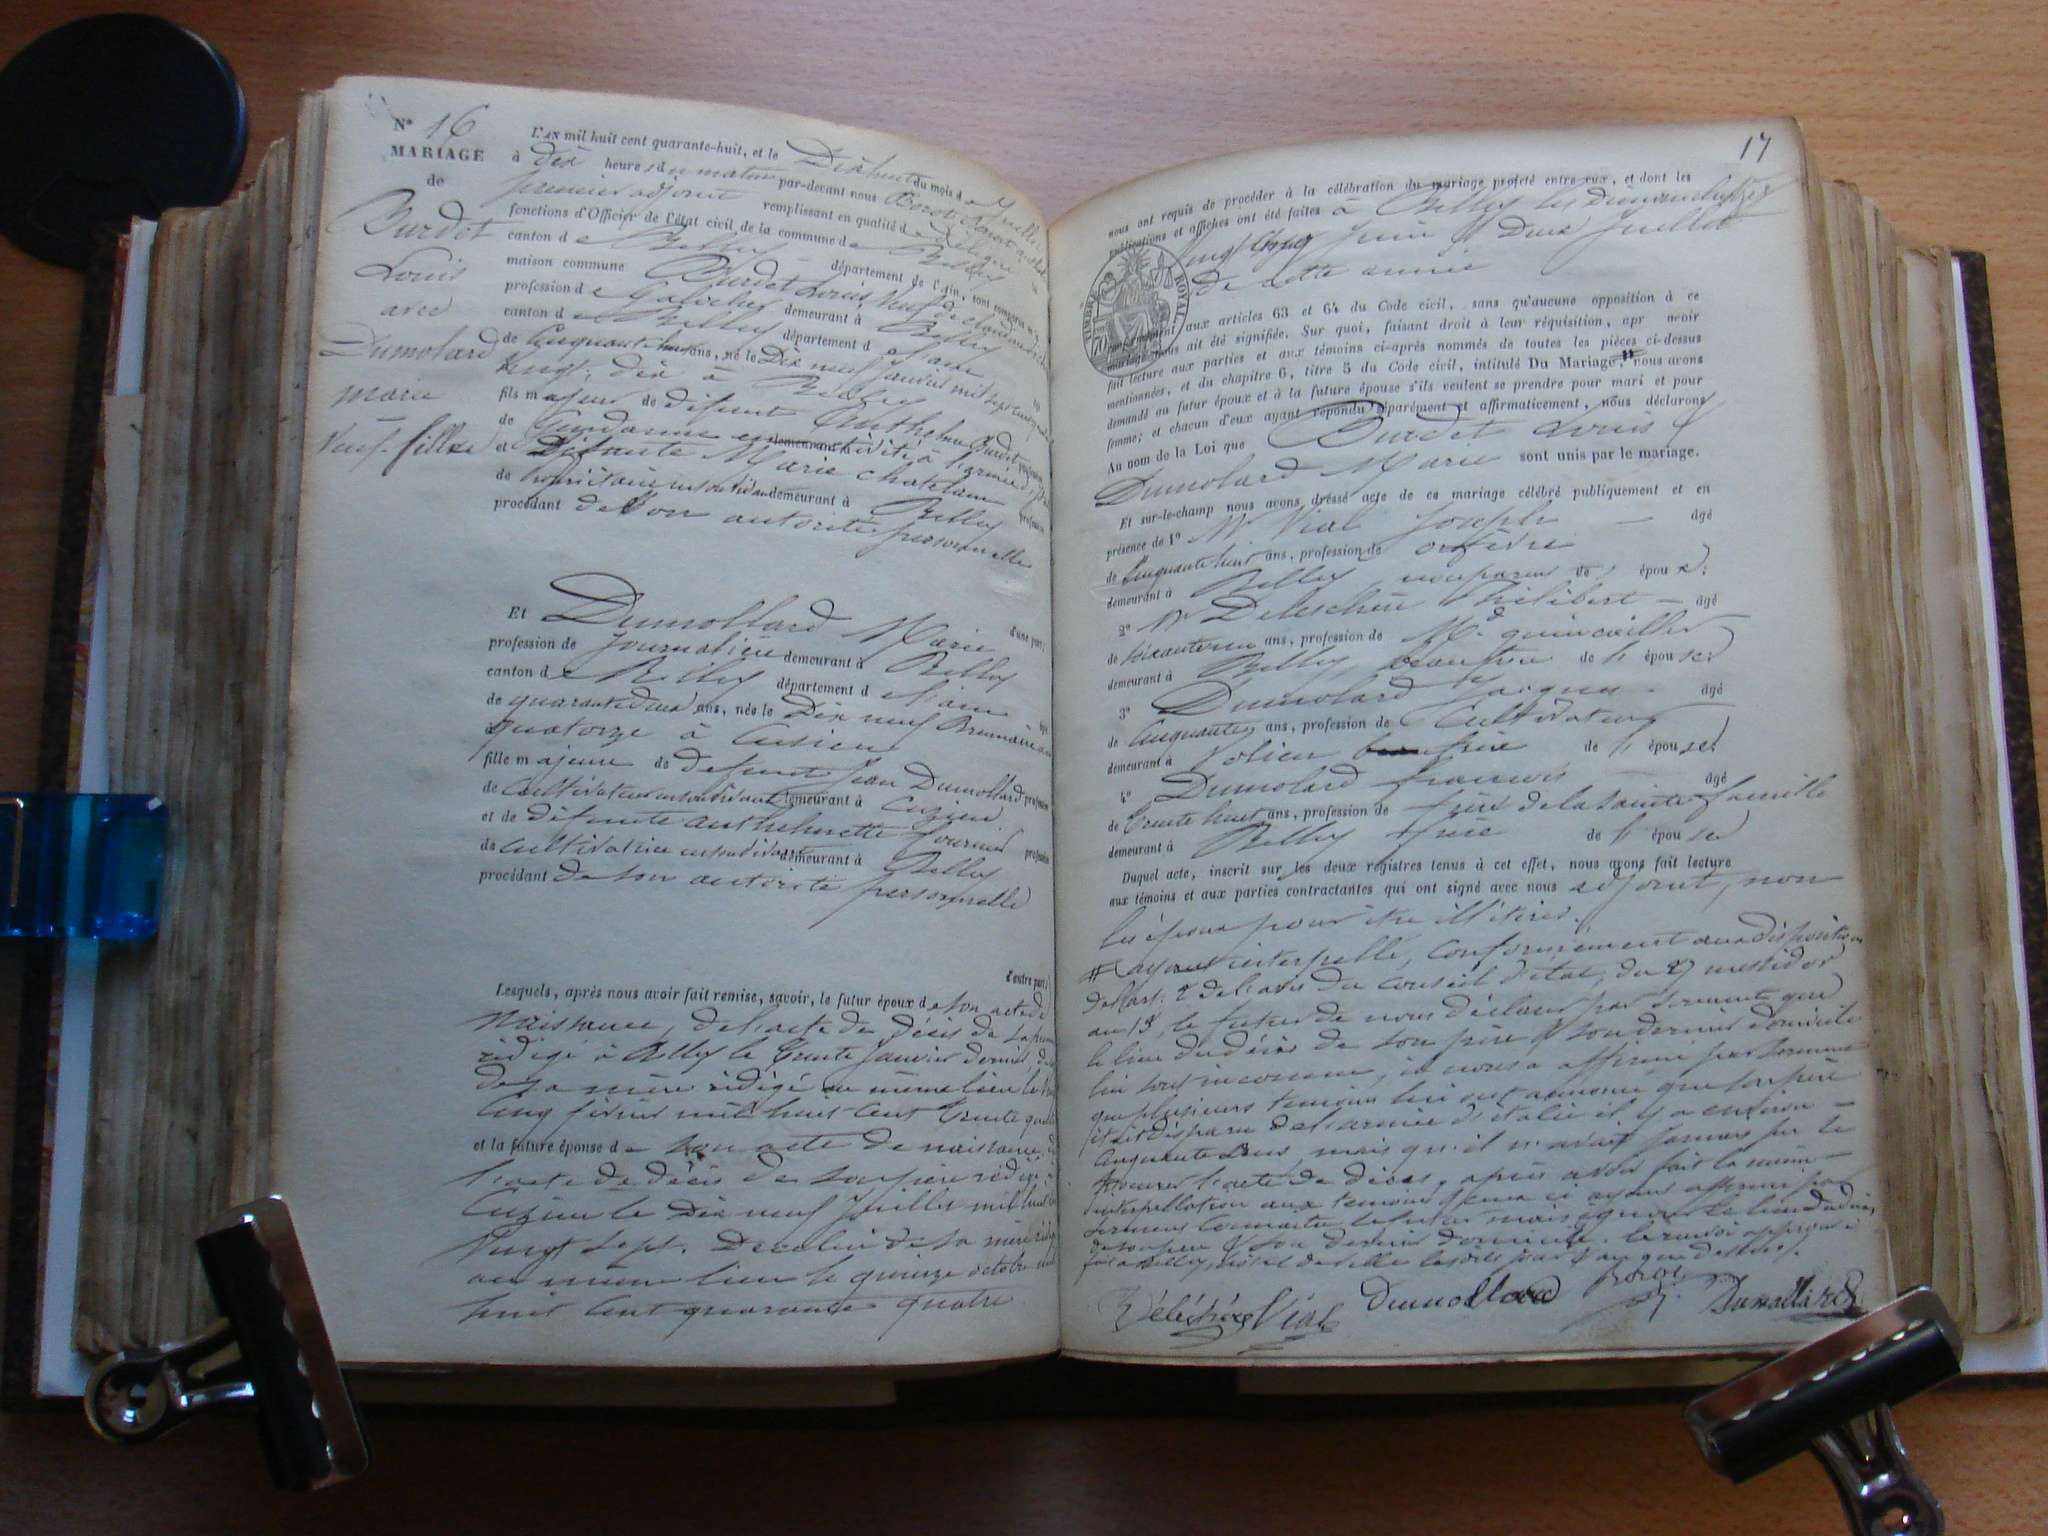 N° 16
MARIAGE
de
Burdot
Louis
avec
Dumolard
marie
veuf - fille
L'AN mil huit cent quarante-huit, et le Dixhuit du mois de Juillet
à dix heures du matin par-devant nous
premier adjoint remplissant en qualité de délégué
fonctions d'Officier de l'état civil de la commune de Belley
canton de Belley département de l'Ain, sont comparus en la
maison commune Burdet Louis veuf de
profession de Galocher demeurant à Belley
canton de Belley département de l'ain
de Cinquante huit ans, né le Dix neuf Janvier mil sept cent quatre
vingt, dix à Belley
fils majeur de défunt Anthelme Burdet profession
de Gendarme demeurant à l'armée
et Défunte Marie Chatelain profession
de propriétaire en son vivant demeurant à Belley
procédant de son autorité personnelle
d'une part;
Et Dumollard Marie
profession de Journalière demeurant à Belley
canton de Belley département de l'ain
de quarante deux ans, née le Dix neuf Brumaire an
quatorze à Cuzieu
fille majeure de défunt Jean Dumollard profession
de Cultivateur en son vivant demeurant à Cuzieu
et de défunte anthelmette fournier profession
de cultivatrice en son vivant demeurant à Belley
procédant de son autorité personnelle
d'autre part;
Lesquels, après nous avoir fait remise, savoir, le futur époux de son acte de
Naissance, de l'acte de Décès de sa femme
rédigé à Belley le trente Janvier dernier, de
de sa mère rédigé au même lieu le
Cinq février mil huit cent trente quatre
et la future épouse de son acte de naissance, de
l'acte de Décès de son père rédigé à
Cuzieu le Dix neuf Juillet mil huit cent
Vingt sept. De celui de sa mère rédigé
au même lieu le quinze octobre mil
huit cent quarante quatre
17
nous ont requis de procéder à la célébration du mariage projeté entre eux, et dont les
publications et affiches ont été faites à Belley les Dimanches
Vingt Cinq Juin & Deux Juillet
de cette année
TIMBRE ROYAL
70
aux articles 63 et 64 du Code civil, sans qu'aucune opposition à ce
mariage nous ait été signifiée. Sur quoi, faisant droit à leur réquisition, apr avoir
fait lecture aux parties et aux témoins ci-après nommés de toutes les pièces ci-dessus
mentionnées, et du chapitre 6, titre 5 du Code civil, intitulé Du Mariage, # nous avons
demandé au futur époux et à la future épouse s'ils veulent se prendre pour mari et pour
femme; et chacun d'eux ayant répondu séparément et affirmativement, nous déclarons
Au nom de la Loi que Burdet Louis &
Dumolard Marie sont unis par le mariage.
Et sur-le-champ nous avons dressé acte de ce mariage célébré publiquement et en
présence de 1° Mr Vial Joseph — âgé
de Cinquante huit ans, profession de orfèvre
demeurant à Belley, non parent de l' épouse;
2° Mr Deleschère Philibert — âgé
de soixante un ans, profession de Md quincailler
demeurant à Belley, beau frère de l' épouse;
3° Dumolard Jacques — âgé
de Cinquante ans, profession de Cultivateur
demeurant à frère de l' épouse;
4° Dumolard francois âgé
de trente huit ans, profession de frère de la sainte famille
demeurant à Belley frère de l' épouse;
Duquel acte, inscrit sur les deux registres tenus à cet effet, nous avons fait lecture
aux témoins et aux parties contractantes qui ont signé avec nous adjoint, non
les époux pour être illitérés.
# ayant interpellé, Conformément aux dispositions
de l'art. 2 de l'avis du Conseil d'état, du 27 messidor
an 13, le futur de nous déclarer par serment que
le lieu du décès de son père & son dernier domicile
lui sont inconnus, il nous a affirmé par serment
que plusieurs témoins lui ont annoncé que son père
était disparu de l'armée d'italie il y a environ —
Cinquante ans, mais qu'il n'avait jamais pu se
procurer l'acte de décès, après avoir fait la même —
interpellation aux témoins & ceux ci ayant affirmé par
serment connaitre le futur mais ignorer le lieu du décès
de son père & son dernier domicile.
fait à Belley, hôtel de ville les jour mois & an que dessus.
Vial Dumollard Dumollard